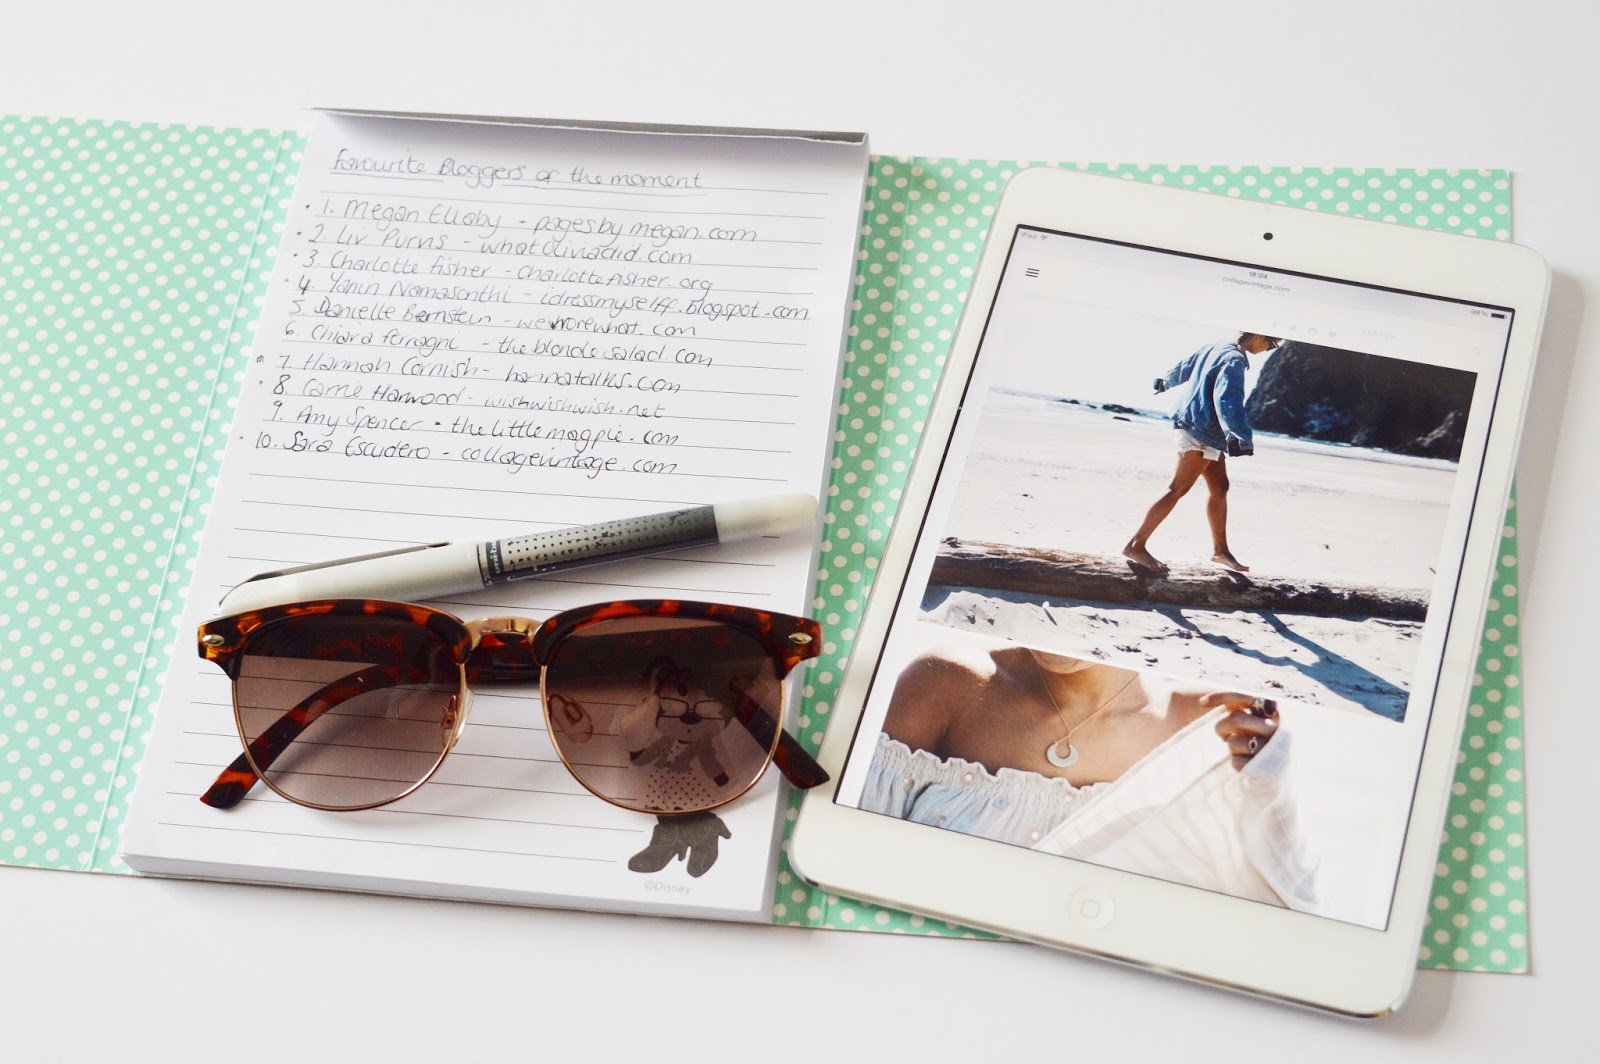 Favourite Bloggers of the moment
1. Megan Ellaby - pagesbymegan.com
2. Liv Purvis - whatoliviadid.com
3. Charlotte fisher - charlottefisher.org
4. Yanin Namasonthi - idressmyselff.blogspot.com
5. Danielle Bernstein - weworewhat.com
6. Chiara ferragni - theblondesalad.com
7. Hannah Cornish - hannatalks.com
8. Carrie Harwood - wishwishwish.net
9. Amy Spencer - thelittlemagpie.com
10. Sara Escudero - collagevintage.com
©Disney
iPad
18:04
98%
collagevintage.com
SEARCH